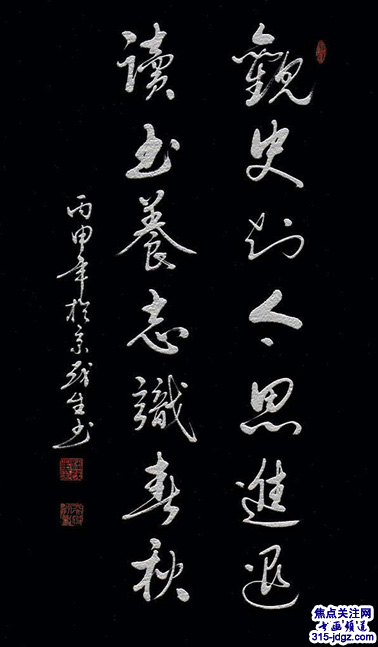 觀史知今思進退
讀书養志識春秋
丙申年於京生书
焦点关注网
书画频道
315-jdgz.com